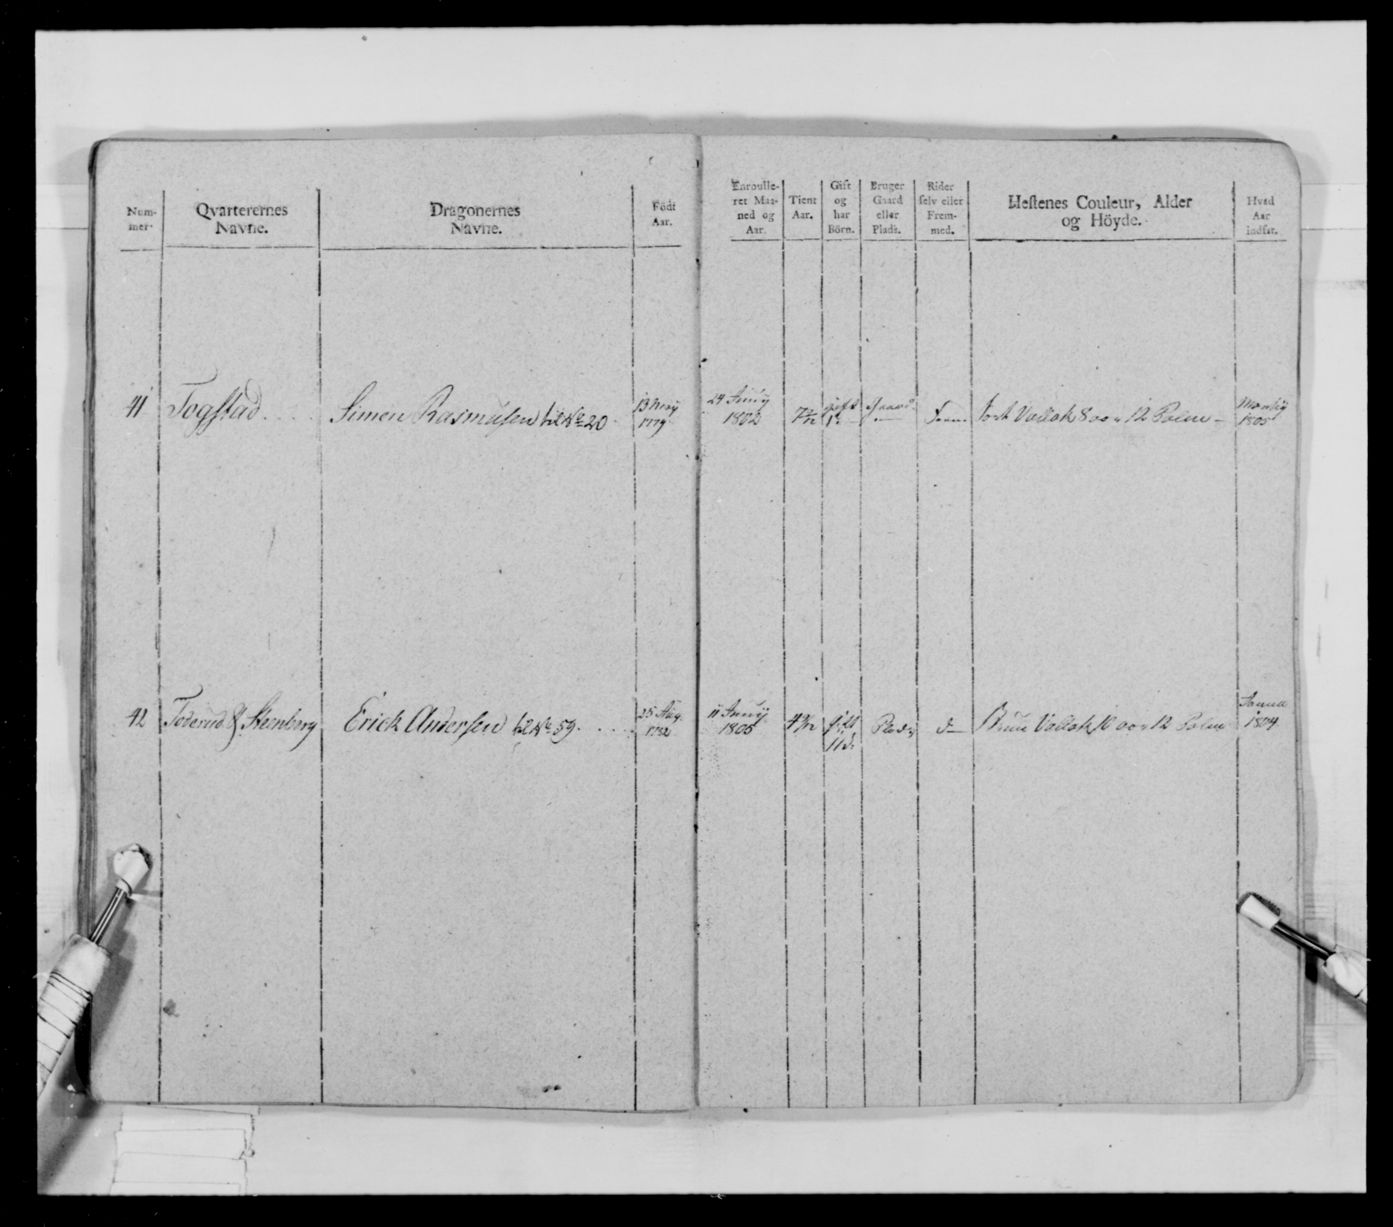 Num-
mer.
Qvarterernes
Navne.
Dragonernes
Navne.
Födt
Aar.
Enroulle-
ret Maa-
ned og
Aar.
Tient
Aar.
Gift
og
har
Börn.
Bruger
Gaard
eller
Plads.
Rider
selv eller
Frem-
med.
Hestenes Couleur, Alder
og Höyde.
Hvad
Aar
indsat.
41 Togstad Simen Rasmusen til No 20
1779
24 Juny
1802
gift
1
Gaard
Frem
Sort Vallak 8 aar 12 Palm
1805
42 Toverud & Steenberg Erick Andersen til No 59
25 Aug.
1782
11 Juny
1805
gift
11 d:
Plads
do
Bruun Vallak 10 aar 12 Palm
1804